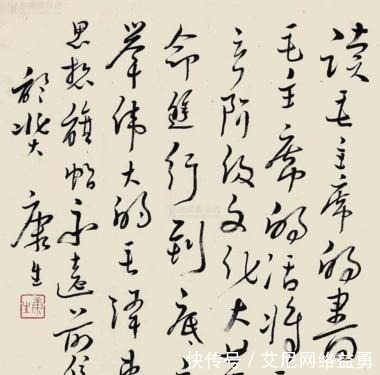 读毛主席的书
毛主席的话将
产阶级文化大
命进行到底
举伟大的毛泽东
思想旗帜永远前
康生
快传号/艾尼网络益勇